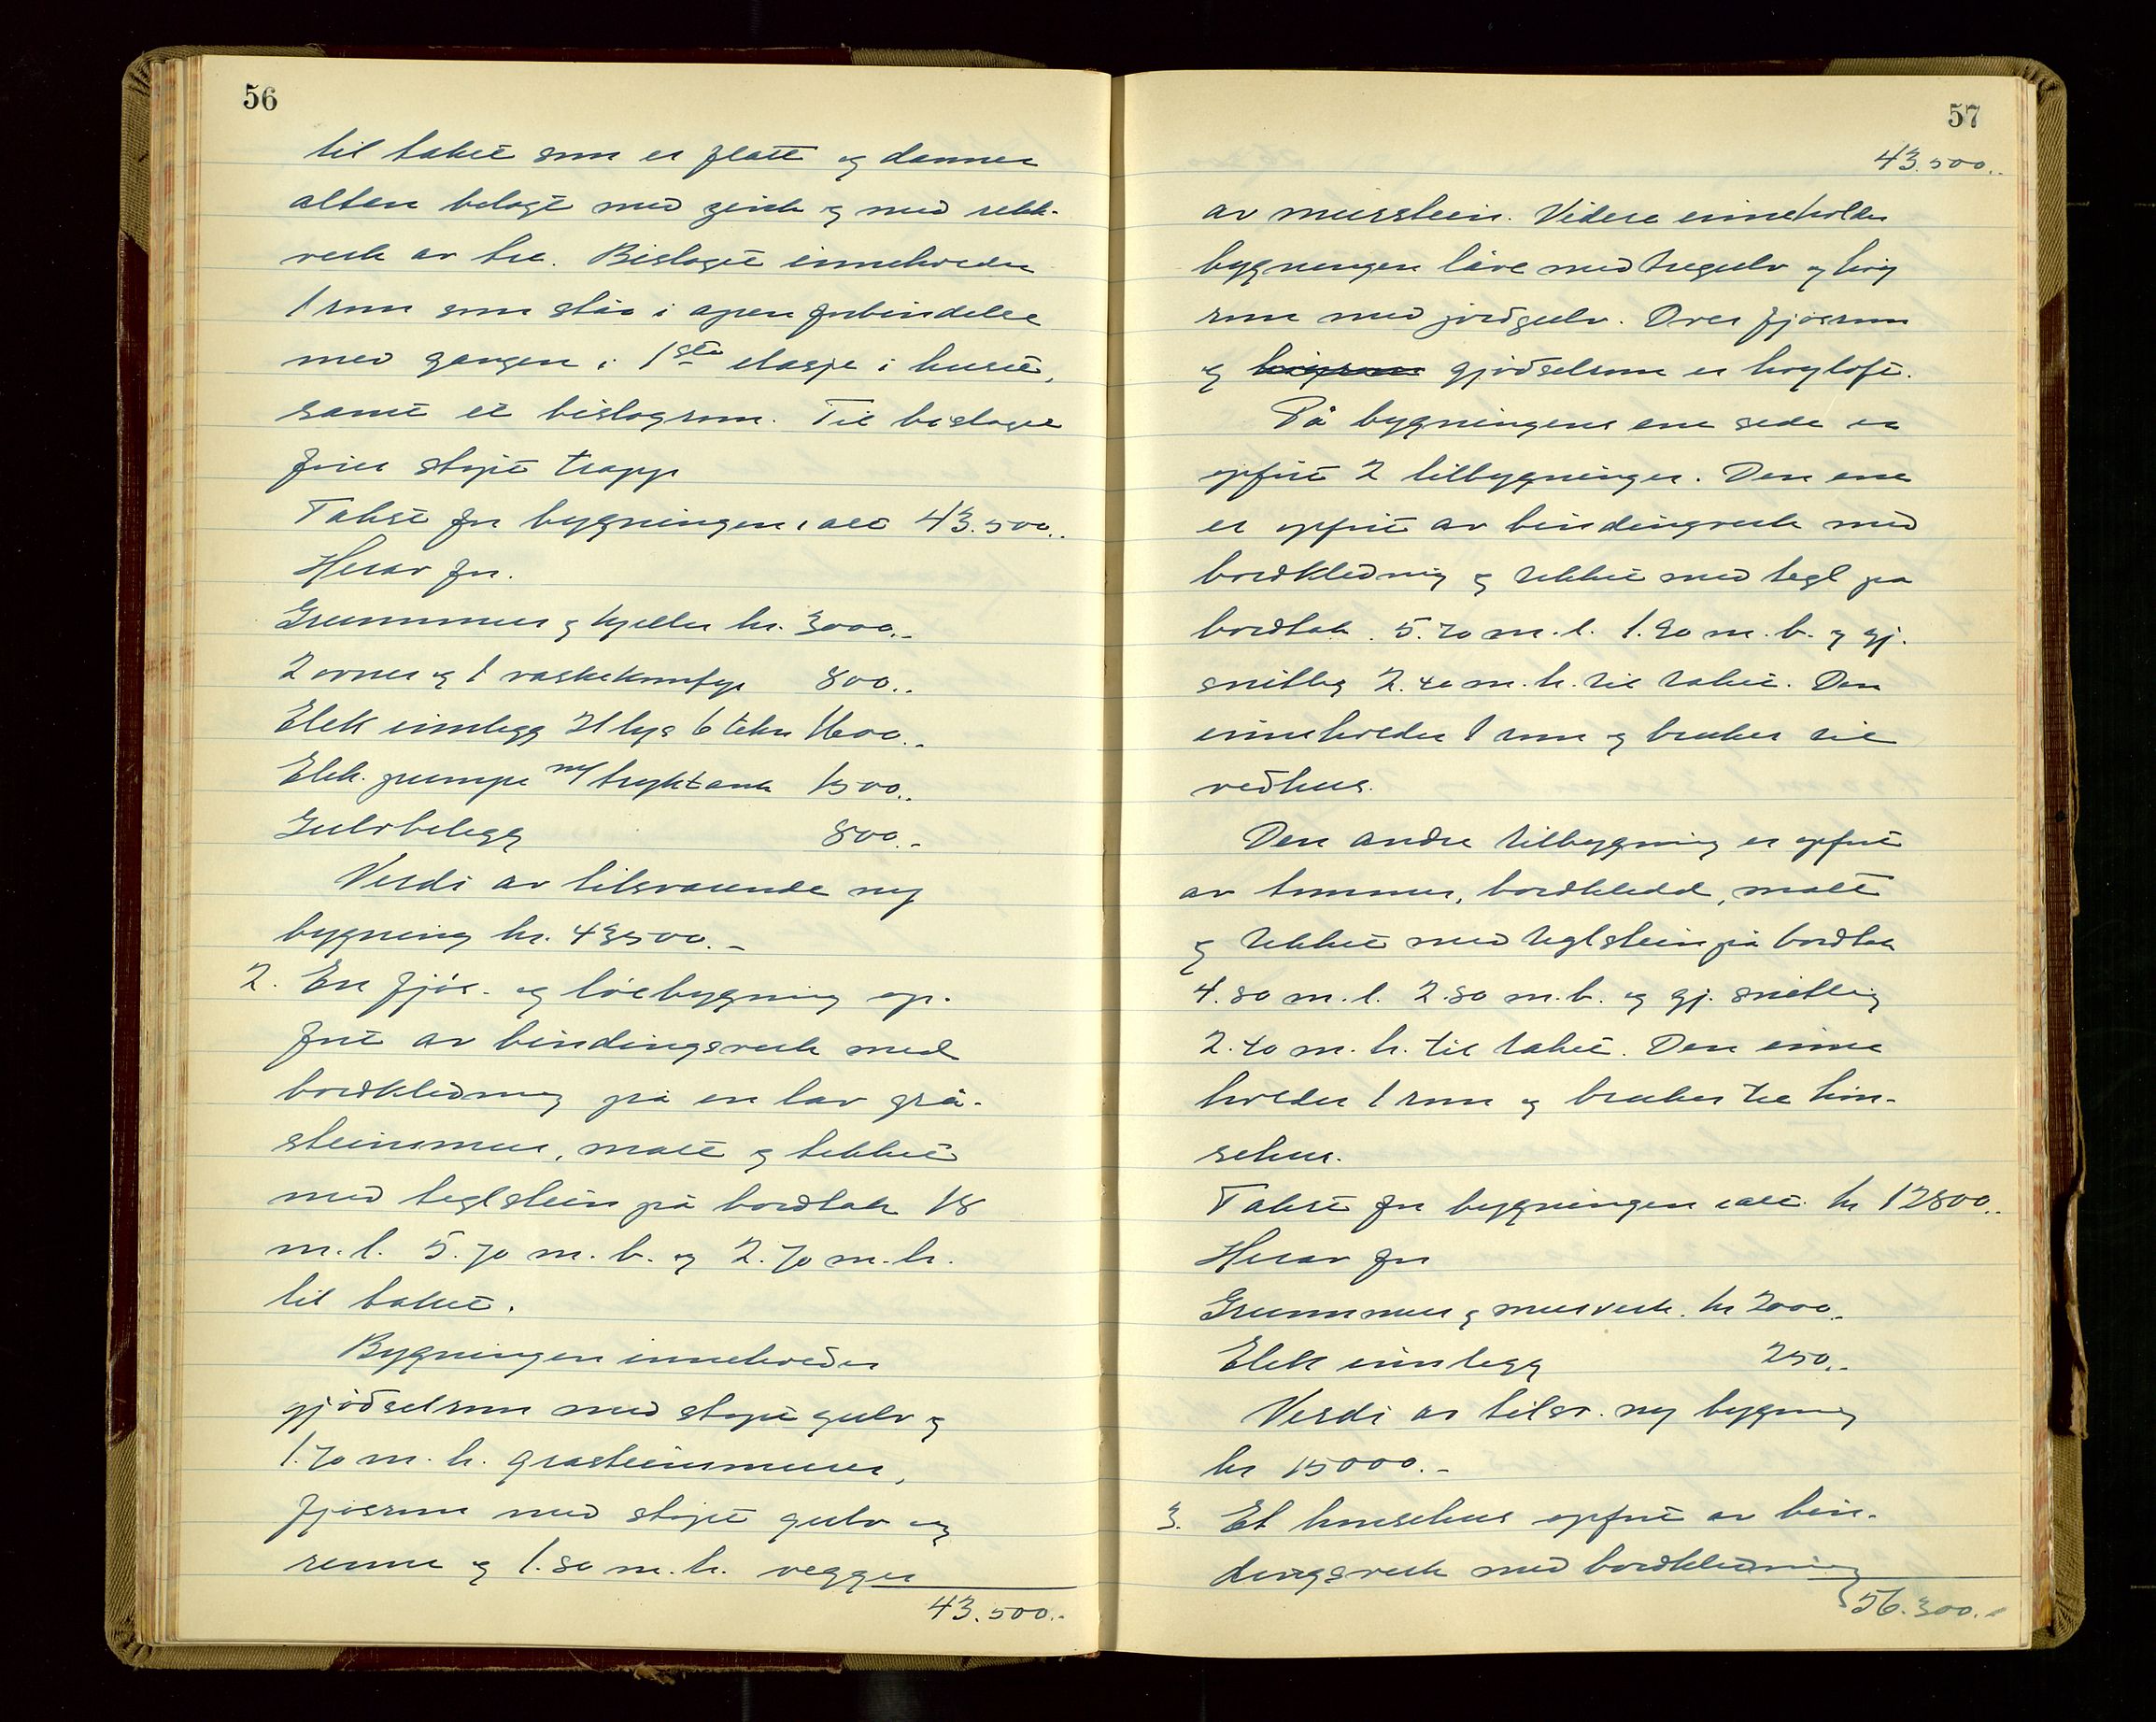 56
til taket som er flatt og danner
altan belagt med zink og med rekk-
verk av tre. Bislaget inneholder
1 rom som står i åpen forbindelse
med gangen i 1ste etasje i huset,
samt et bislagrom. Til bislaget
fører støpt trapp
Takst for bygningen ialt 43.500.-
Herav for.
Grunnmur og kjeller kr. 3000.-
2 ovner og 1 vaskekomfyr 800.-
Elek innlegg 21 lys 6 tekn 1600.-
Elek. pumpe m/ trykktank 1500.-
Gulvbelegg 800.-
Verdi av tilsvarende ny
bygning kr. 43500.-
2. En fjøs- og løebygning op-
ført av bindingsverk med
bordkledning på en lav grå-
steinsmur, malt og tekket
med teglstein på bordtak 18
m.l. 5.70 m.b. og 2.70 m.h.
til taket.
Bygningen inneholder
gjødselrom med støpt gulv og
1.70 m.h. gråsteinsmurer,
fjøsrom med støpt gulv og
renne og 1.80 m.h. vegger
43.500.-
57
43.500.-
av murstein. Videre inneholder
bygningen låve med tregulv og høy
rom med jordgulv. Over fjøsrom
og høyrom gjødselrom er høyloft.
På bygningens ene side er
opført 2 tilbygninger. Den ene
er opført av bindingverk med
bordkledning og tekket med tegl på
bordtak. 5.70 m.l. 1.90 m.b. og gj.
snittlig 2.40 m.h. til taket. Den
inneholder 1 rom og brukes til
vedhus.
Den andre tilbygning er opført
av tømmer, bordkledd, malt
og tekket med teglstein på bordtak
4.80 m.l. 2.80 m.b. og gj. snittlig
2.40 m.h. til taket. Den inne
holder 1 rom og brukes til høn-
sehus.
Takst for bygningen ialt kr 12800.-
Herav for
Grunnmur og murverk. kr 2000.-
Elek innlegg 250.-
Verdi av tilsv. ny bygning
kr 15000.-
3. Et hønsehus opført av bin-
dingsverk med bordkledning
56.300.-